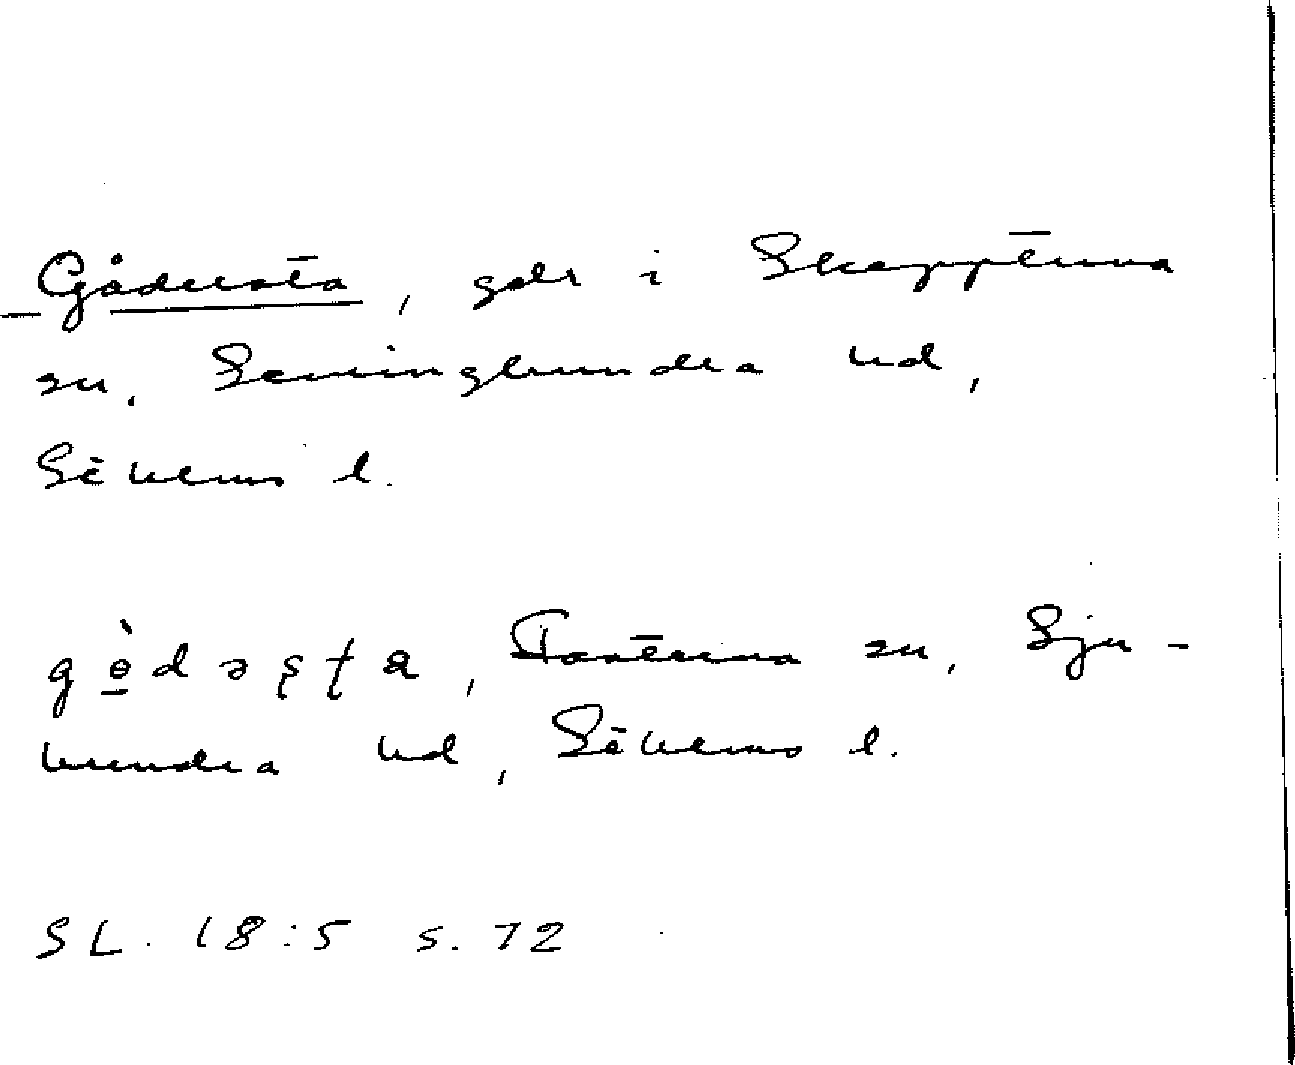 Gådersta, går i Skepptuna
sn, Seminghundra hd,
Sthlms l.
gò̱dəʂʈa, Fasterna sn, Sju-
hundra hd, Sthlms l.
SL. 18:5 s. 72